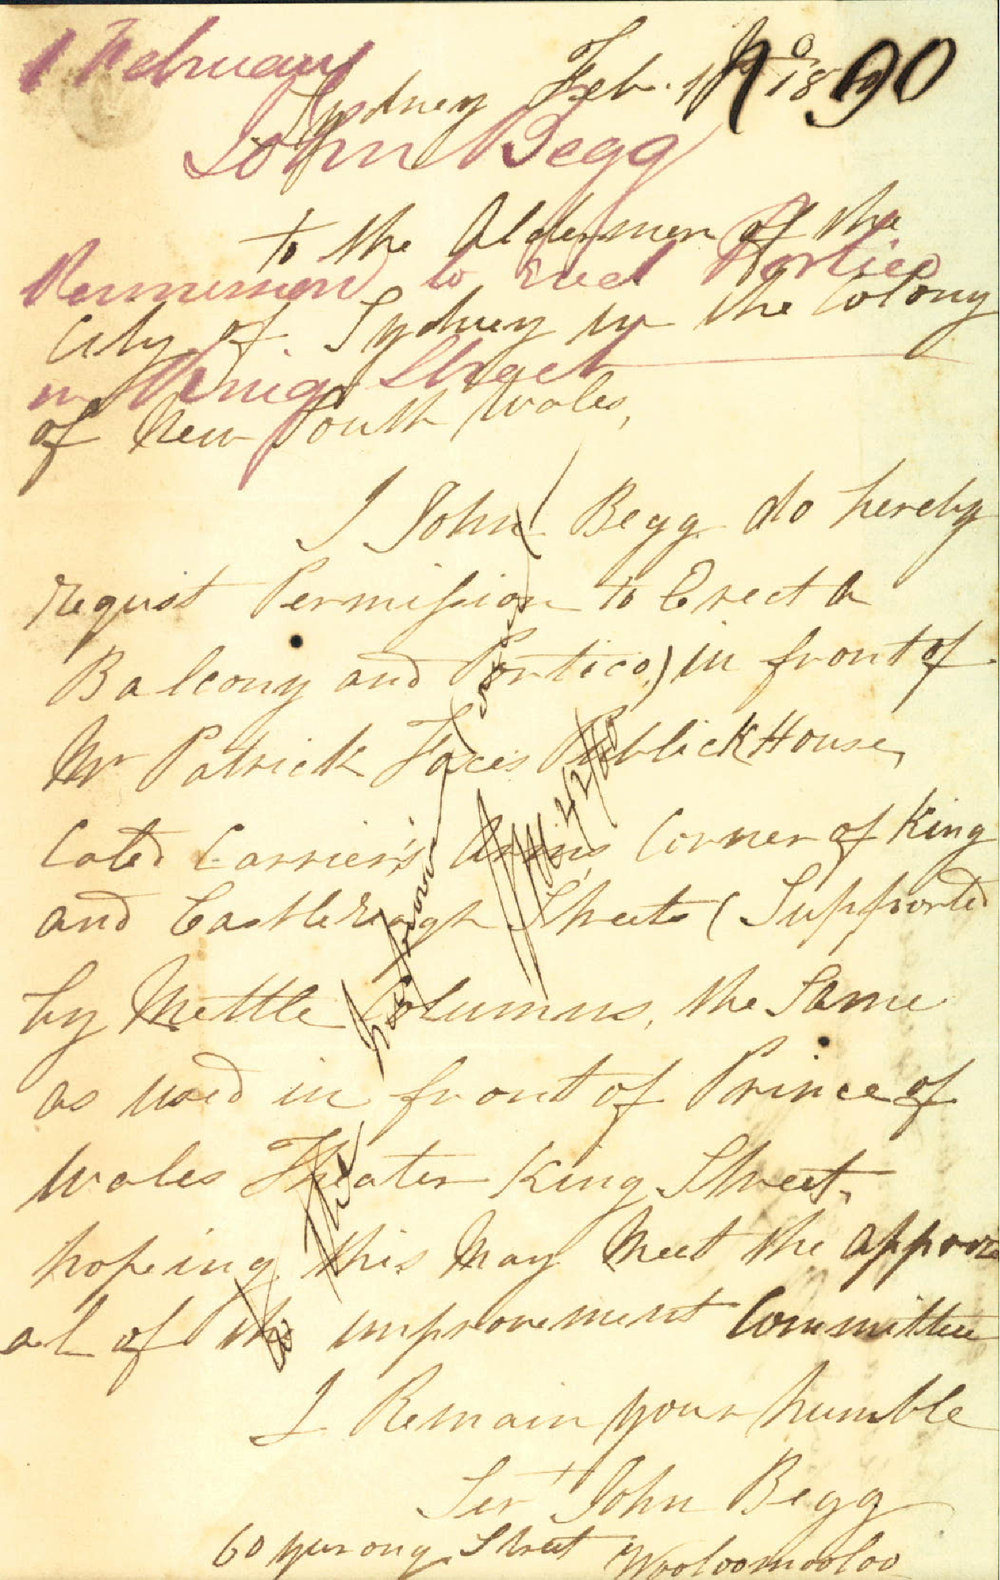 1 February
Sydney Feb. 1st 18
No 90
John Begg
to the Aldermen of the
Permission to Erect Portico
City of Sydney in the Colony
in King Street
of New South Wales,
I John Begg do hereby
request Permission to Erect a
Balcony and Portico) in front of
Mr Patrick Publick House,
Carrier's Arms Corner of King
and Castlereagh Streets (Supported
by Mettle Columns, the Same
as used in front of Prince of
Wales Theater King Street,
hopeing this May Meet the approv
al of the improvement Committee
I Remain your humble
Servt John Begg
60 yurong Street Wooloomooloo
to The Improvement